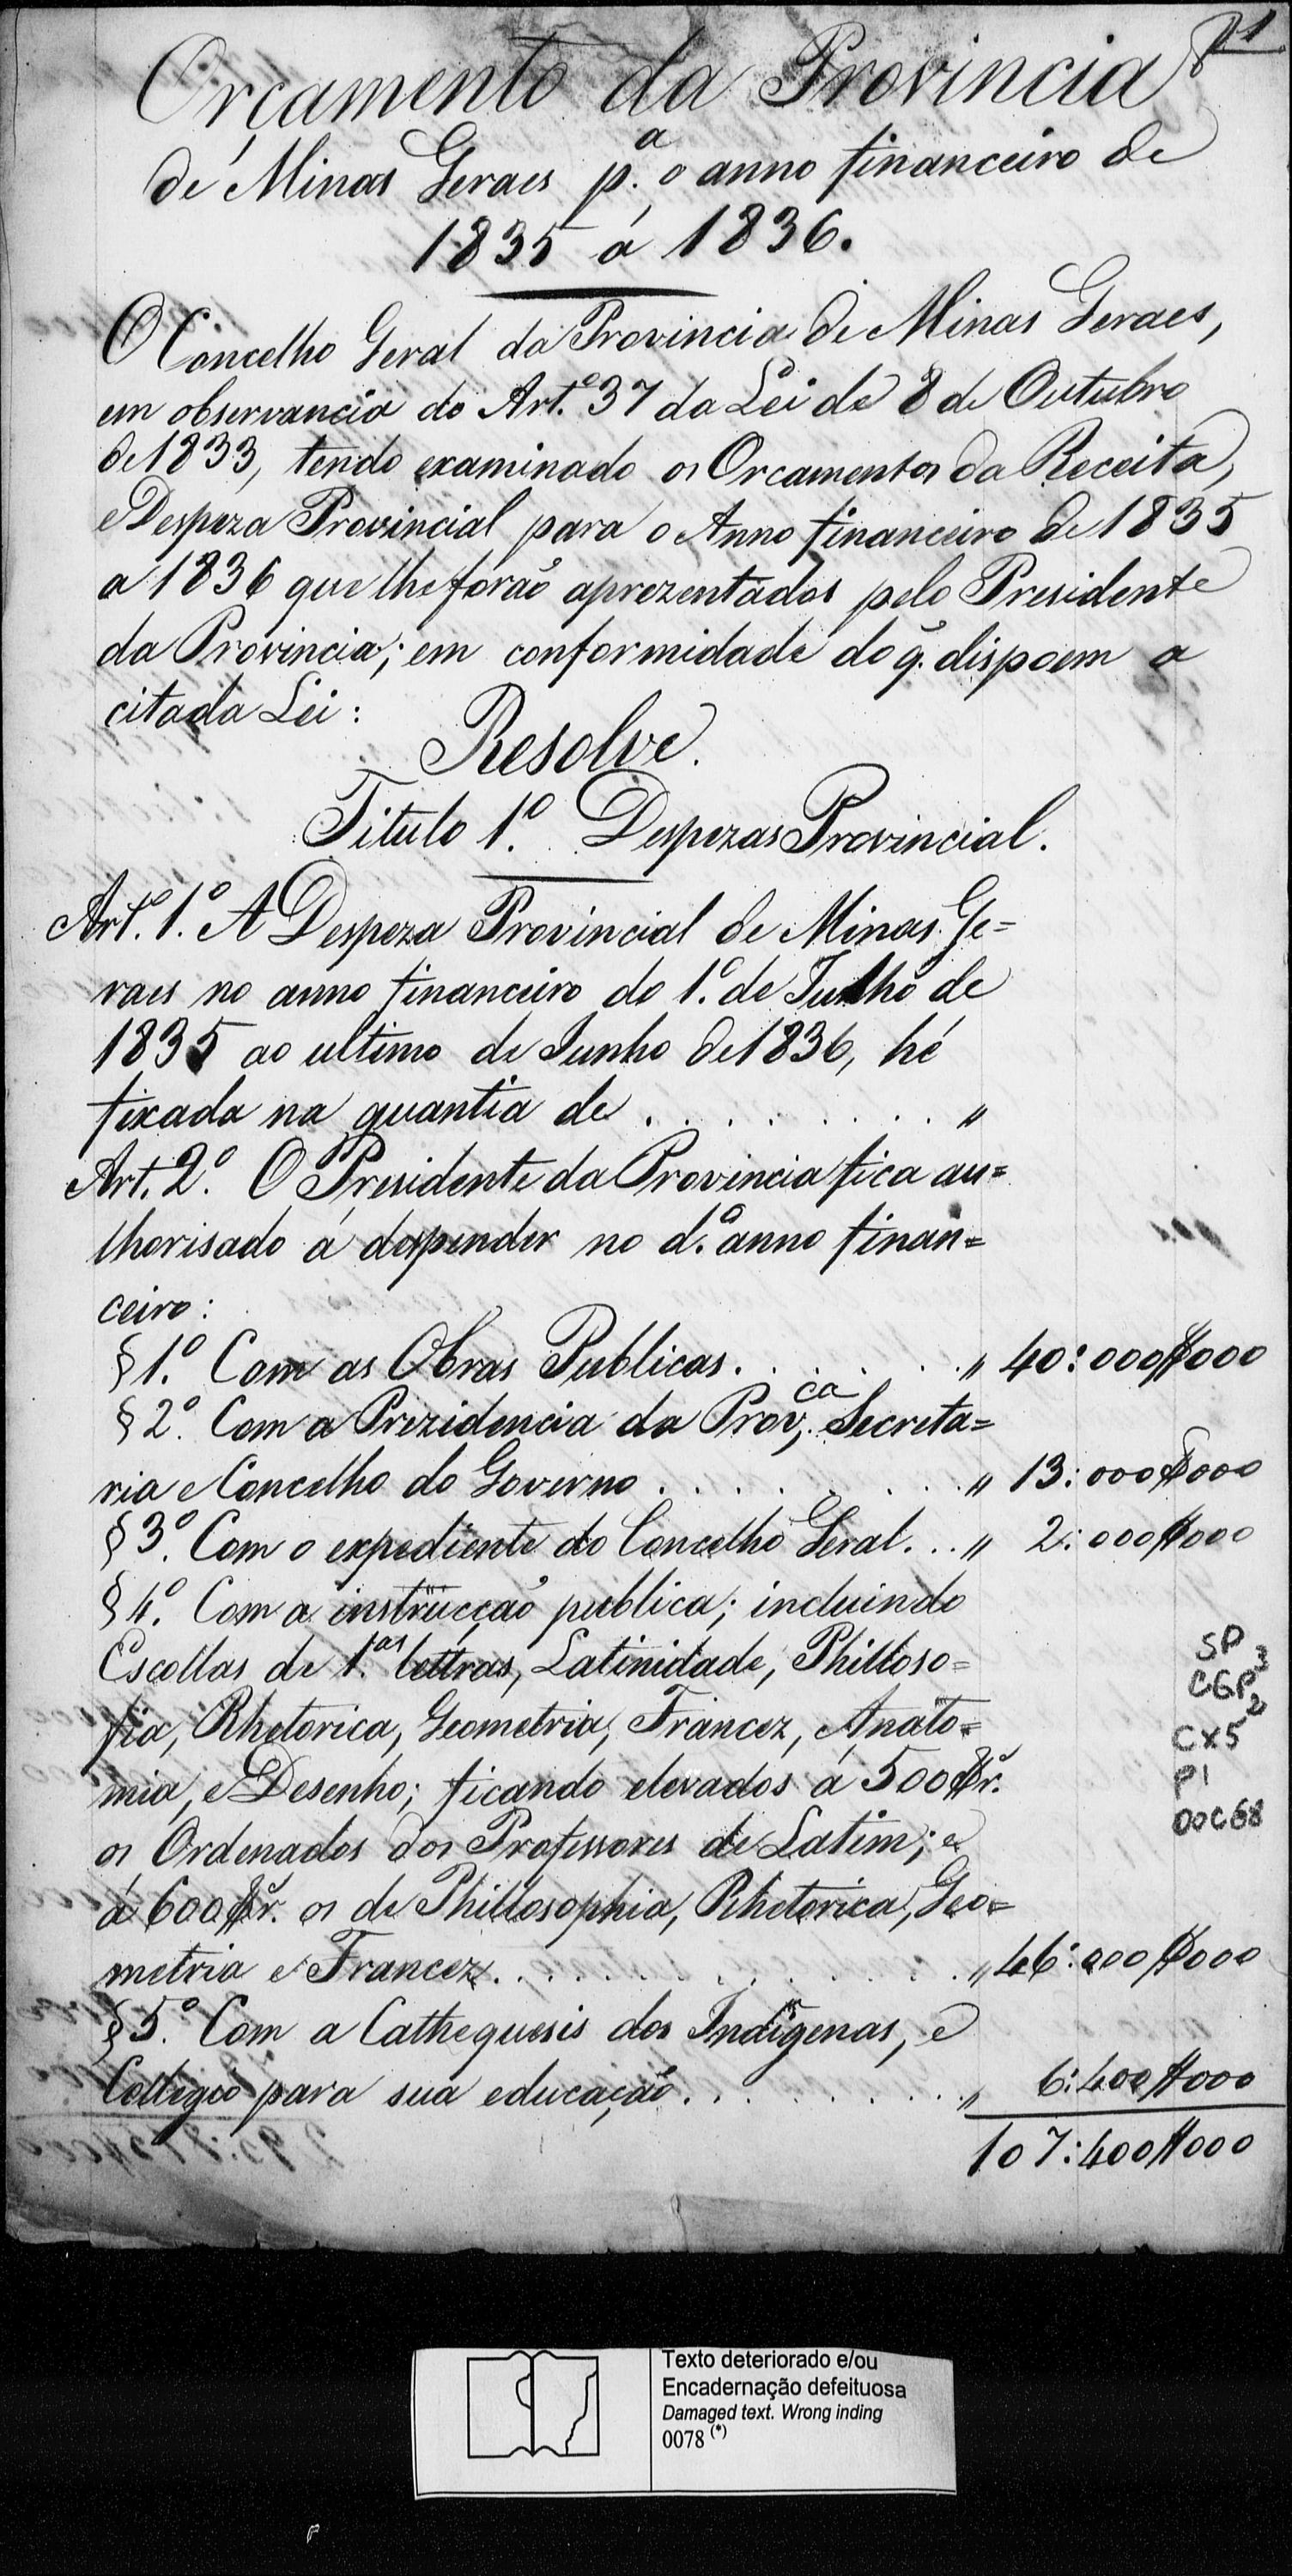 P1
Orçamento da Provincia
de Minas Geraes p.ª o anno financeiro de
1835 á 1836.
O Concelho Geral da Provincia de Minas Geraes,
em observancia do Art.º 37 da Lei de 8 de Outubro
de 1833, tendo examinado os Orcamentos da Receita,
e Despeza Provincial para o Anno financeiro de 1835
a 1836 que lhe forão aprezentados pelo Presidente
da Provincia; em conformidade do q̃. dispoem a
citada Lei:
Resolve.
Titulo 1.º Despezas Provincial.
Art.º 1.º A Despeza Provincial de Minas Ge=
raes no anno financeiro do 1.º de Julho de
1835 ao ultimo de Junho de 1836, hé
fixada na quantia de . . . . . . . "
Art. 2.º O Presidente da Provincia fica au=
thorisado á despender no d.º anno finan=
ceiro:
§ 1.º Com as Obras Publicas. . . . . . . " 40:000$000
§ 2.º Com a Prezidencia da Prov.ca, Secreta=
ria e Concelho do Governo . . . . . . . . " 13:000$000
§ 3.º Com o expediente do Concelho Geral. . . " 2:000$000
§ 4.º Com a instrucção publica; incluindo
Escollas de 1.as lettras, Latinidade, Philloso=
fia, Rhetorica, Geometria, Francez, Anato=
mia, e Desenho; ficando elevados á 500$r.
os Ordenados dos Professores de Latim; e
á 600$r. os de Phillosophia, Rhetorica, Geo=
metria e Francez. . . . . . . . . . . . " 46:000$000
§ 5.º Com a Cathequesis dos Indigenas, e
Collegio para sua educação. . . . . . . . " 6:400$000
107:400$000
SP
CGP3
CX52
P1
DOC68
Texto deteriorado e/ou
Encadernação defeituosa
Damaged text. Wrong inding
0078 (*)